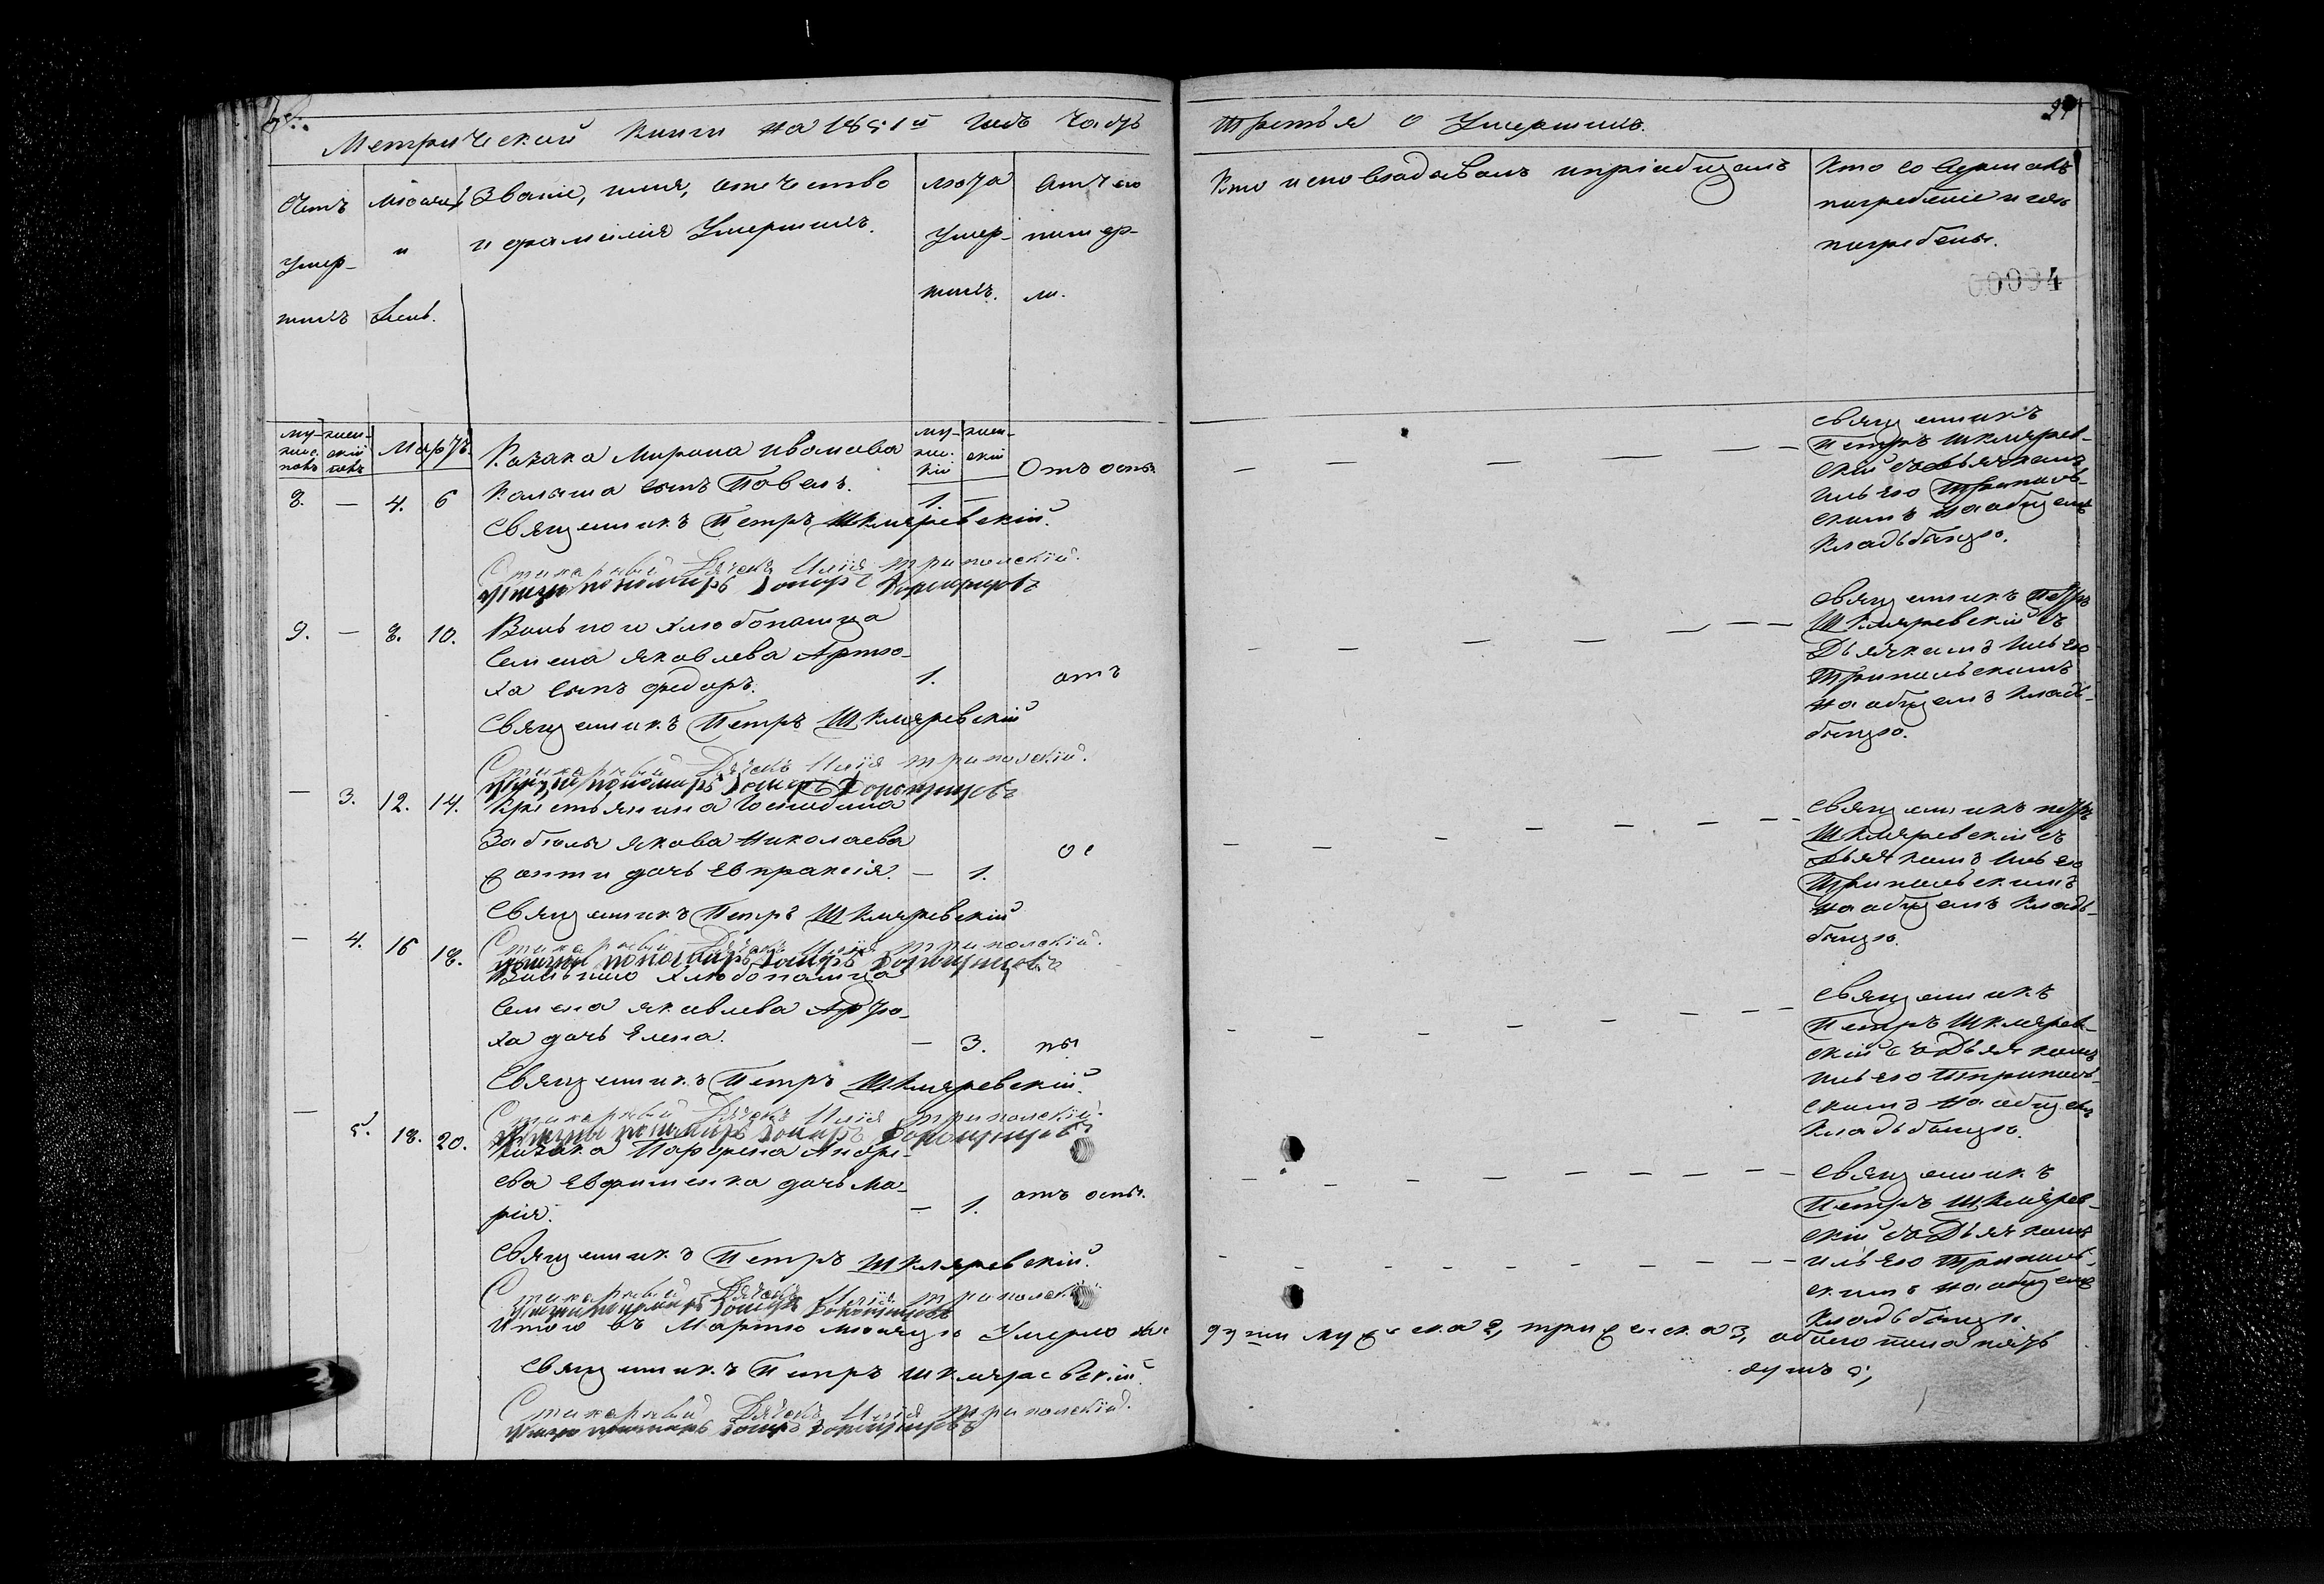 Метрической книги на 1851й годъ часть
третья о Умершихъ.
Счетъ Умер-шихъ
Месяцъ и день.
Званіе, имя, отечество
и фамилия Умершихъ.
Лета Умер-шихъ.
Отъ чего померли.
Кто исповедовалъ и пріобщалъ
Кто совершалъ
погребеніе и где
погребены.
00094
муже. полъ женскій полъ
Мартъ.
мужескій женскій
8. — 4. 6
Козака Мирона Иванова
Калаша сынъ Павелъ. 1. — Отъ оспы.
Священникъ Петръ Шкляревскій.
Стихарный Дячокъ Илія Триполскій.
пономаръ
Священникъ
Петръ Шклярев-
скій съ дьячкомъ
Ильею Триполь-
скимъ на общемъ
кладьбищѣ.
9. — 8. 10.
Вольного хлебопашца
Семена Яковлева Артю-
ха сынъ Федоръ. 1. отъ
Священникъ Петръ Шкляревскій
Стихарный Дячокъ Илія Триполскій.
пономаръ
Священникъ Петръ
Шкляревскій съ
Дьячкомъ Ильею
Трипольскимъ
на общемъ кладь-
бищѣ.
— 3. 12. 14.
Крестьянина Господина
Забѣлы Якова Николаева
дочь Евпраксія. — 1. ос
Священникъ Петръ Шкляревскій
Стихарный Дячокъ Илія Триполскій.
пономаръ
Священникъ Петръ
Шкляревскій съ
Дьячкомъ Ильею
Трипольскимъ
на общемъ кладь-
бищѣ.
— 4. 16 18.
Вольного хлебопашца
Семена Яковлева Артю-
ха дочь Елена. — 3. пы
Священникъ Петръ Шкляревскій.
Стихарный Дячокъ Илія Триполскій.
пономаръ
Священникъ
Петръ Шклярев-
скій съ Дьячкомъ
Ильею Триполь-
скимъ на общемъ
кладьбищѣ.
— 5. 18. 20.
Козака Парфена Андре-
ева Евфименка дочь Ма-
рія. — 1. отъ оспы.
Священникъ Петръ Шкляревскій.
Стихарный Дячокъ Илія Триполскій
пономаръ
Священникъ
Петръ Шклярев-
скій съ Дьячкомъ
Ильею Триполь-
скимъ на общемъ
кладьбищѣ.
Итого въ Мартѣ месяцѣ Умерло две
души мужеска 2, три женска 3, обоего пола пять
душъ 5;
Священникъ Петръ Шкляревскій.
Стихарный Дячокъ Илія Триполскій.
пономаръ